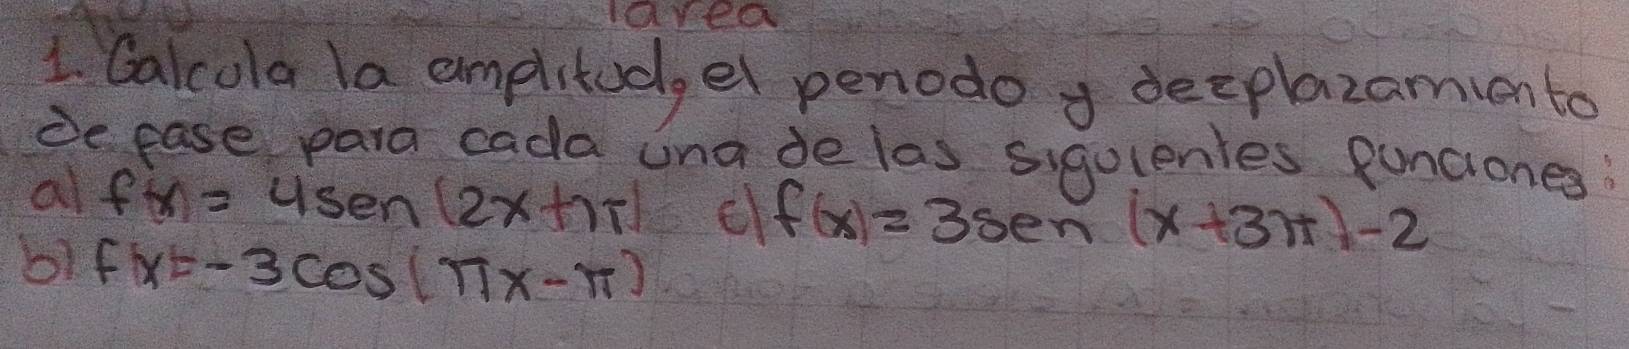 Tarea
1. Calcula la amplitud, el periodo y dezplazamiento
de fase para cada una de las siguientes funciones:
a) f(x) = 4sen(2x+π) c) f(x) = 3sen (x+3π)-2
b) f(x = -3cos(πx-π)